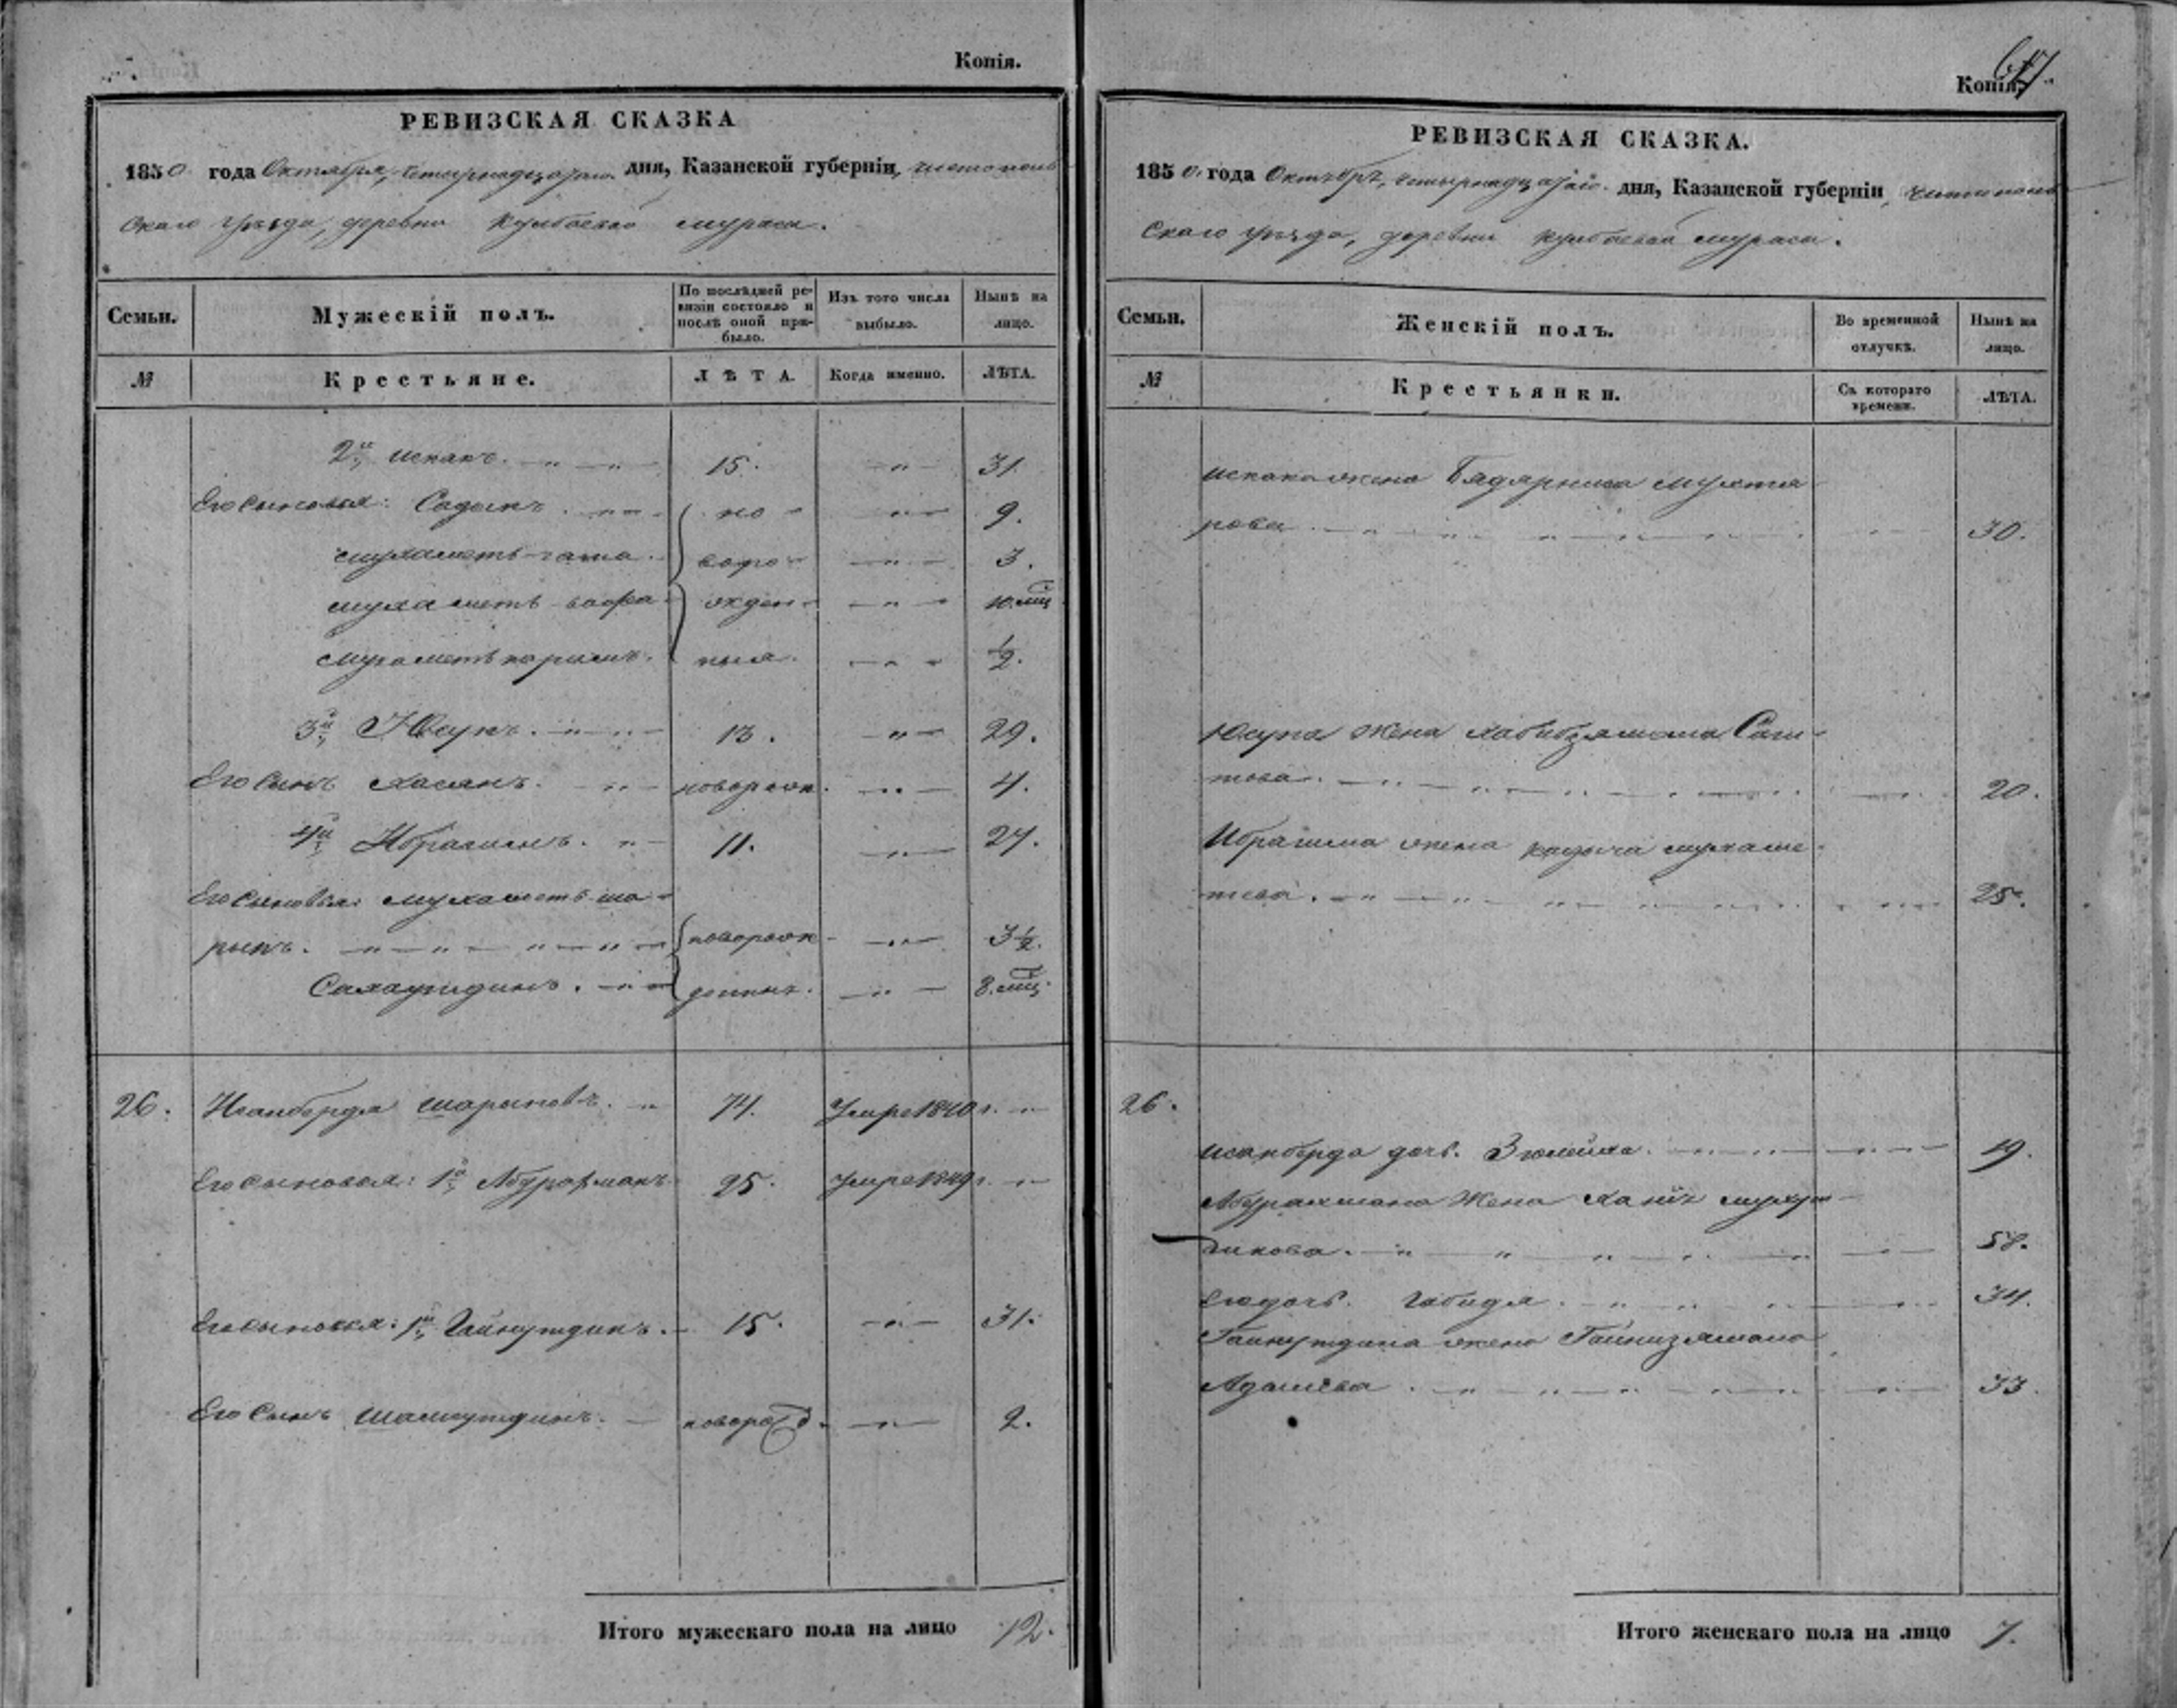 Копія.
РЕВИЗСКАЯ СКАЗКА
1850 года Октября, четырнадцатаго дня, Казанской губерніи, чистополь
скаго уѣзда, деревни Кулбаевой мураси.
Семьи.
Мужескій полъ.
По послѣдней ре-
визіи состояло и
послѣ оной при-
было.
Изъ того числа
выбыло.
Нынѣ на
лицо.
№
Крестьяне.
ЛѢТА.
Когда именно.
ЛѢТА.
2й Искакъ. 15. 31.
Его сыновья: Садыкъ. но 9.
мухаметь-гата. воро 3.
мухаметь вафа жден 10. мц
мухаметь каримъ. ныя. ½.
3й Юсупъ. 13. 29.
Его сынъ хасанъ. новорож. 4.
4й Ибрагимъ. 11. 27.
Его сыновья: мухаметь-ша-
рыпъ. новорож 3½.
Салаутдинъ. денны. 8. мц.
26. Исанберда шарыповъ. 74. Умре 1840 г.
Его сыновья: 1й Абдрахманъ 25. Умре 1849 г.
Его сыновья: 1й Гайнутдинъ. 15. 31.
Его сынъ шамсутдинъ. новорожд. 2.
Итого мужескаго пола на лицо 12.
Копія.
РЕВИЗСКАЯ СКАЗКА.
1850. года Октября, четырнадцатаго. дня, Казанской губерніи, чистополь
скаго уѣзда, деревни Кулбаевой мураси.
Семьи.
Женскій полъ.
Во временной
отлучкѣ.
Нынѣ на
лицо.
№
Крестьянки.
Съ котораго
времени.
ЛѢТА.
искака жена Бадярниса мухтя
рова 30.
Юсупа жена хабибзямала Саги-
това. 20.
Ибрагима жена хадыча мухаме-
това. 25.
26.
исанберда дочь. Зюлейха. 19.
Абдрахмана жена
58.
Его дочь. Габидя. 34.
Гайнутдина жена Гайнизямала
Адашева. 33.
Итого женскаго пола на лицо 7.